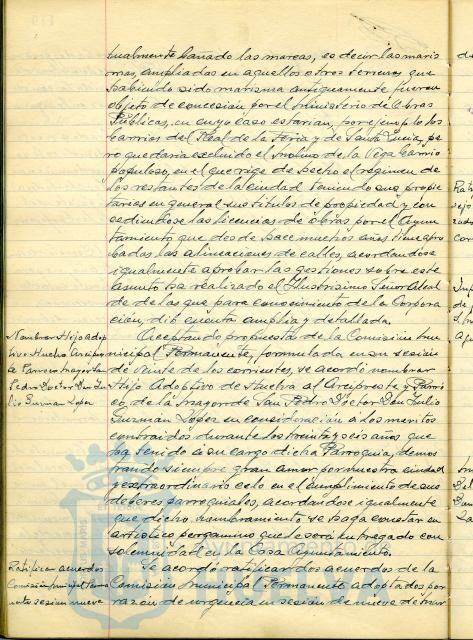 tualmente bañado las mareas, es decir las maris
mas, ampliadas en aquellos otros terrenos que
habiendo sido marisma antiguamente fueron
objeto de concesión por el Ministerio de Obras
Públicas, en cuyo caso estarían, por ejemplo los
barrios del Real de la Feria y de Santa Lucía, pe
ro quedaría excluido el Molino de la Vega barrio
populoso, en el que rige de hecho el régimen de
los restantes de la ciudad teniendo sus propie
tarios en general sus títulos de propiedad y con
cediéndose las licencias de obras por el Ayun
tamiento que desde hace muchos años tiene apro
badas las alineaciones de calles, acordándose
igualmente aprobar las gestiones sobre este
asunto ha realizado el Ilustrísimo Señor Alcal
de de las que para conocimiento de la Corpora
ción, dió cuenta amplia y detallada.
Nombrar Hijo Adop
tivo Huelva Arcipreste
Parroco Mayor de
Pedro Doctor Don Ju
lio Guzman Lopez
Aceptando propuesta de la Comisión Mu
nicipal Permanente, formulada en su sesión
de veinte de los corrientes, se acordó nombrar
Hijo Adoptivo de Huelva al Arcipreste y Párro
co, de la mayor de San Pedro Doctor Don Julio
Guzman Lopez en consideración a los méritos
contraidos durante los treinta y seis años que
ha tenido a su cargo dicha Parroquia, demos
trando siempre gran amor por nuestra ciudad
y extraordinario celo en el cumplimiento de sus
deberes parroquiales, acordándose igualmente
que dicho nombramiento se haga constar en
artístico pergamino que le será entregado con
solemnidad en la Casa Ayuntamiento.
Ratificar acuerdos
Comisión municipal Perma
nente sesión nueve
Se acordó ratificar los acuerdos de la
Comisión Municipal Permanente adoptados por
razón de urgencia en sesión de nueve de